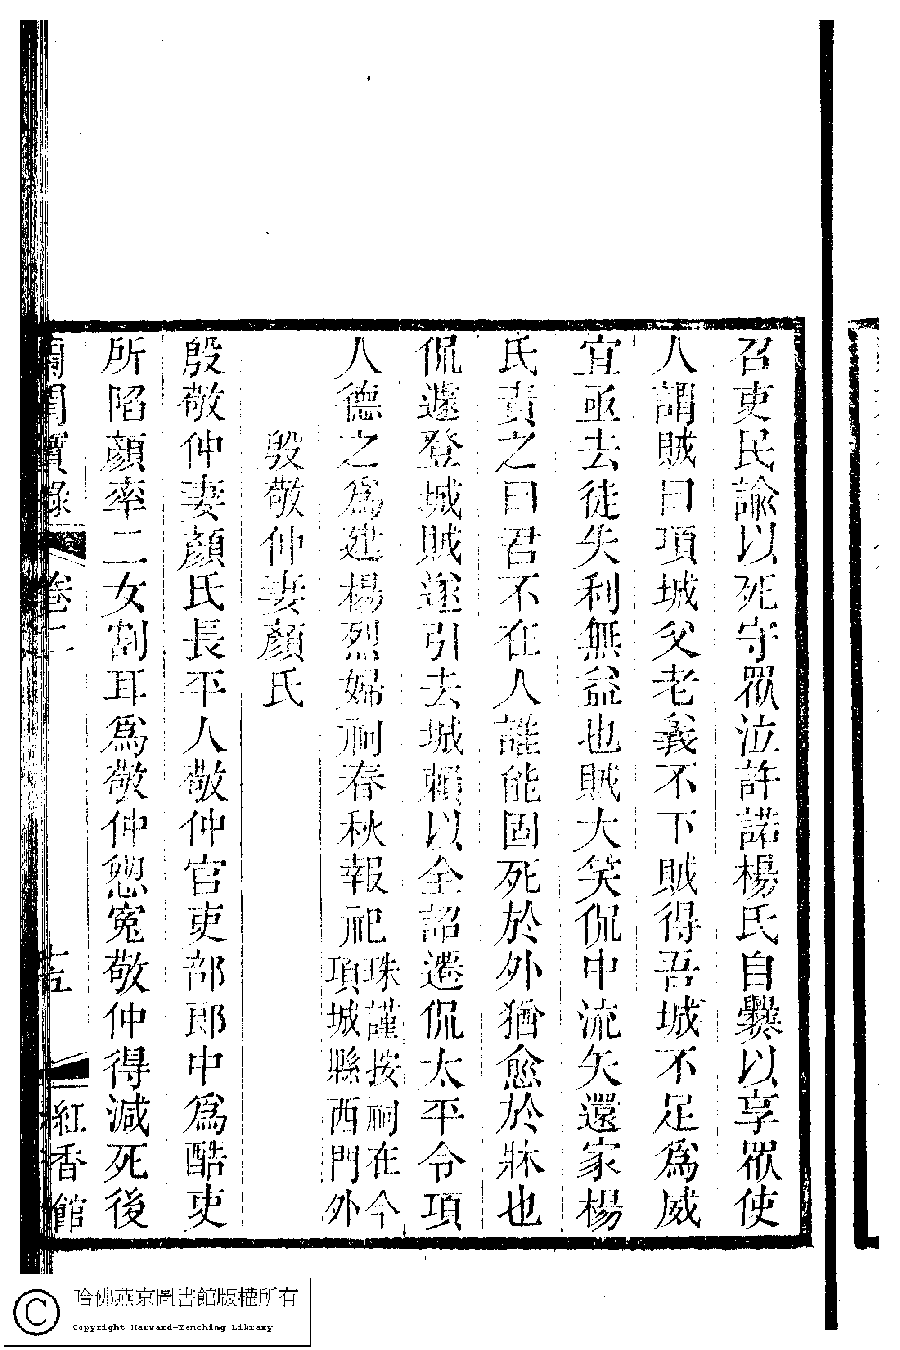 召吏民諭以死守眾泣許諾楊氏自爨以享眾使
人謂賊曰項城父老義不下賊得吾城不足為威
宜亟去徒失利無益也賊大笑侃中流矢還家楊
氏責之曰君不在人誰能固死於外猶愈於牀也
侃遽登城賊遂引去城賴以全詔遷侃太平令項
人德之為建楊烈婦祠春秋報祀
珠謹按祠在今
項城縣西門外
殷敬仲妻顏氏
殷敬仲妻顏氏長平人敬仲官吏部郎中為酷吏
所陷顏率二女割耳為敬仲愬冤敬仲得減死後
蘭閨寶錄
卷二
十五
紅香館
哈佛燕京圖書館版權所有
Copyright Harvard-Yenching Library